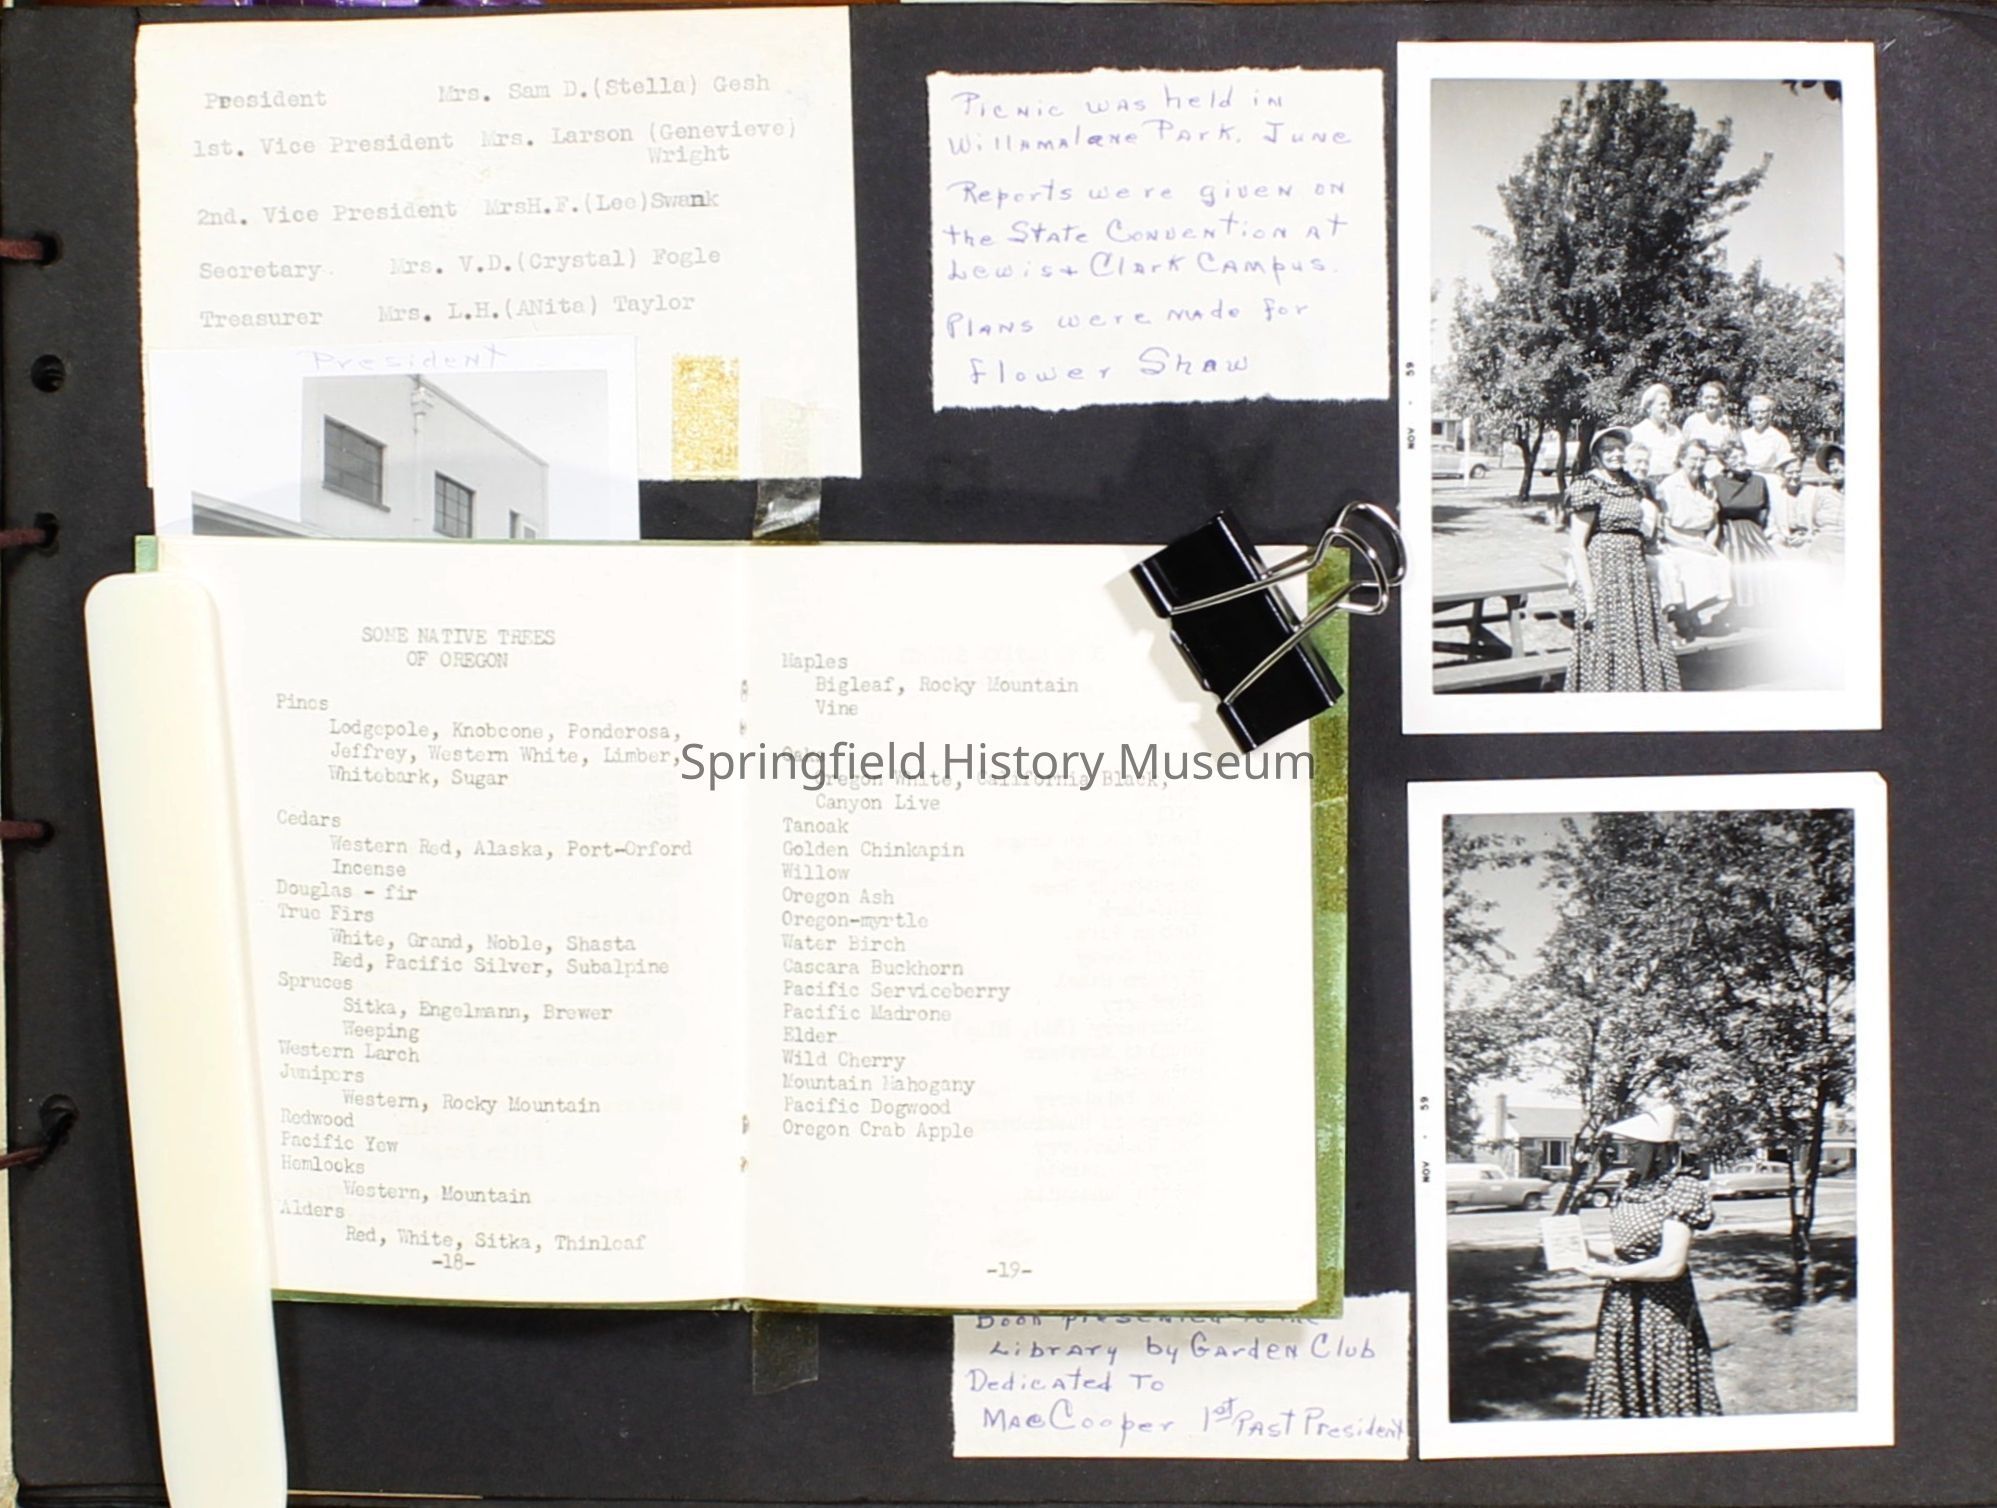 President Mrs. Sam D.(Stella) Gesh
1st. Vice President Mrs. Larson (Genevieve)
Wright
2nd. Vice President MrsH.F.(Lee)Swank
Secretary. Mrs. V.D.(Crystal) Fogle
Treasurer Mrs. L.H.(ANita) Taylor
President
Picnic was held in
Willamalane Park, June
Reports were given on
the State Convention at
Lewis + Clark Campus.
Plans were made for
Flower Show
NOV . 59
SOME NATIVE TREES
OF OREGON
Pines
Lodgepole, Knobcone, Ponderosa,
Jeffrey, Western White, Limber,
Whitebark, Sugar
Cedars
Western Red, Alaska, Port-Orford
Incense
Douglas - fir
True Firs
White, Grand, Noble, Shasta
Red, Pacific Silver, Subalpine
Spruces
Sitka, Engelmann, Brewer
Weeping
Western Larch
Junipers
Western, Rocky Mountain
Redwood
Pacific Yew
Hemlocks
Western, Mountain
Alders
Red, White, Sitka, Thinleaf
-18-
Maples
Bigleaf, Rocky Mountain
Vine
Oaks
Oregon White, California Black,
Canyon Live
Tanoak
Golden Chinkapin
Willow
Oregon Ash
Oregon-myrtle
Water Birch
Cascara Buckhorn
Pacific Serviceberry
Pacific Madrone
Elder
Wild Cherry
Mountain Mahogany
Pacific Dogwood
Oregon Crab Apple
-19-
Springfield History Museum
NOV . 59
Book presented to the
Library by Garden Club
Dedicated To
Mae Cooper 1st Past President